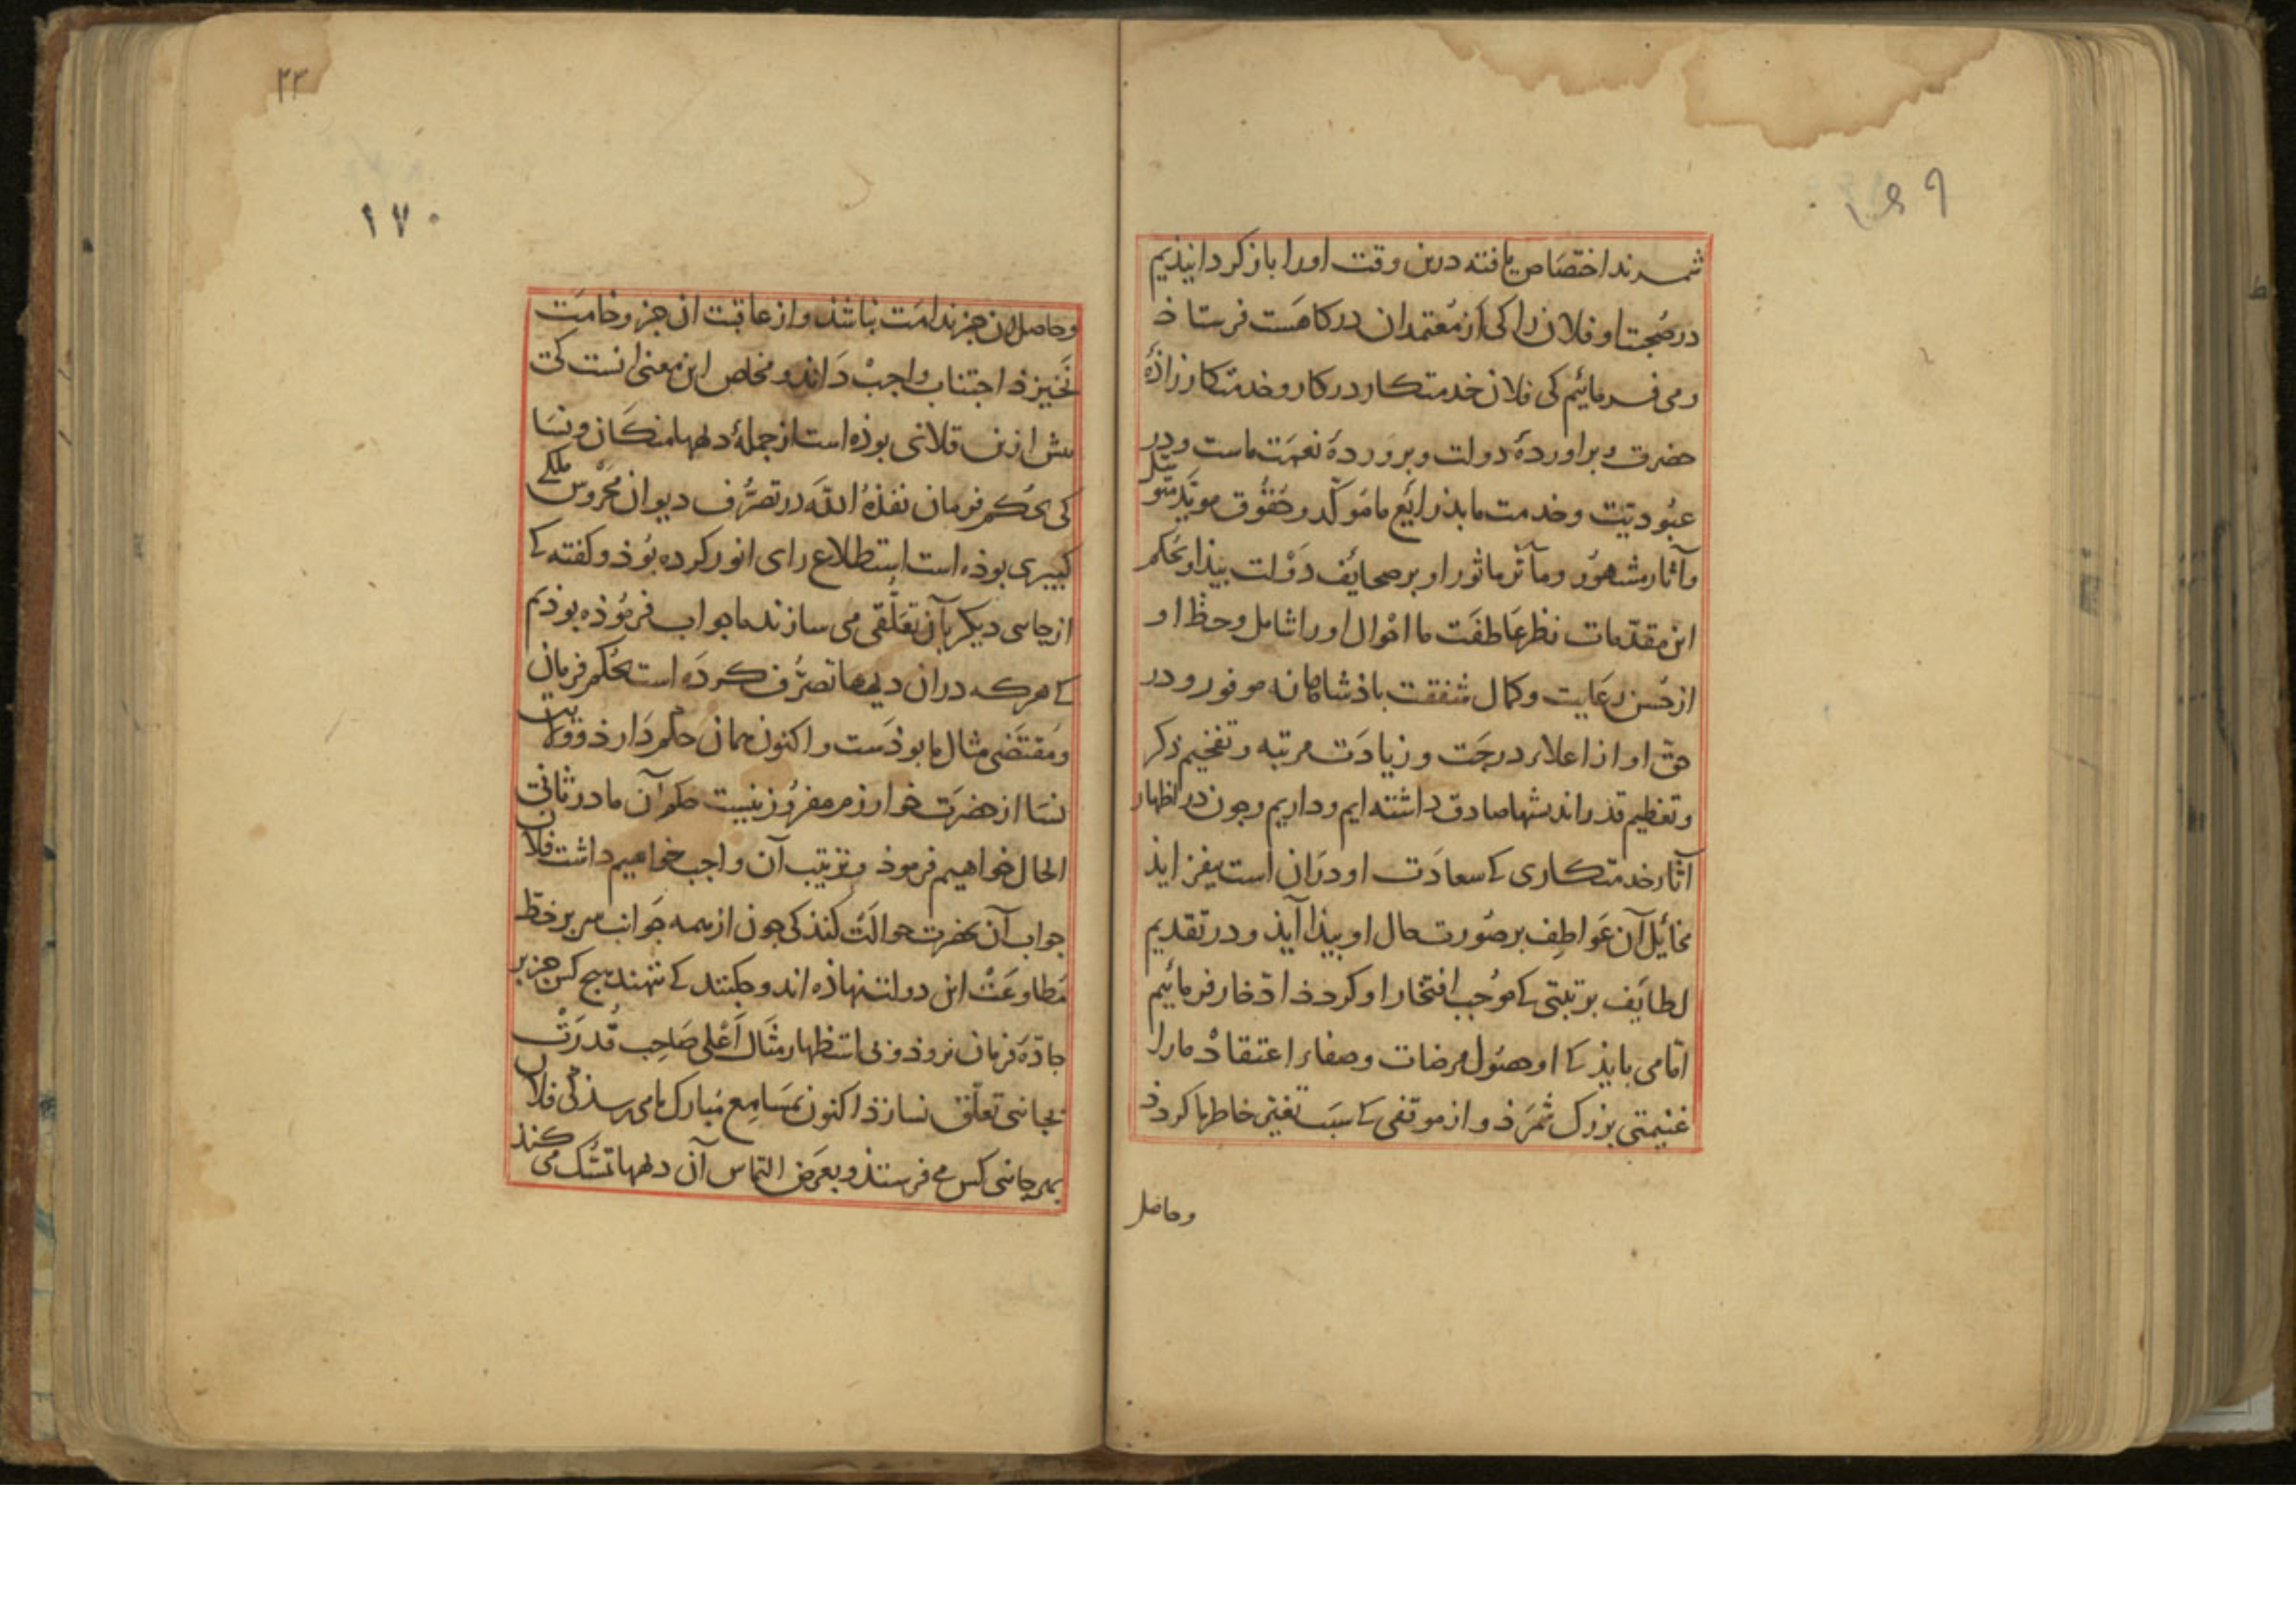 شمرند اختصاص یافته درین وقت اورا باز کردانیذیم
در صحبت او فلان را کی از معتمدان درکاهست فرستاذ
و می فرمائیم کی فلان خدمتکار در کار و خدمتکار زاذه
حضرت و براورده دولت و برورده نعمت ماست و در
عبودیت و خدمت ما بذرایع ما موکد و حقوق موید متوسل
و آثار مشهور و مآثر ماثور او بر صحایف دولت بیذا و بحکم
این مقدمات نظر عاطفت ما احوال اورا شامل و حظ او
از حسن رعایت و کمال شفقت باذشاهانه موفور و در
حق او از اعلاء درجت و زیادت مرتبه و تفخیم ذکر
و تعظیم قدر اندیشها صادق داشته ایم و داریم و جون در اظهار
آثار خدمتکاری که سعادت او دران است بیفزایذ
مخائل آن عواطف بر صورت حال او بیذا آیذ و در تقدیم
لطایف برتبتی که موجب افتخار او کردذ اذخار فرمائیم
اما می بایذ که او حصول مرضات و صفاء اعتقاد ما را
غنیمتی بزرک شمرذ و از موقفی که سبب تغیر خاطر ما کردذ
وحاصل
۲۳
۱۷۰
وحاصل ان جز ندامت نباشذ و از عاقبت ان جز وخامت
نخیزذ اجتناب واجب داند و مخلص این معنی انست کی
بیش ازین فلانی بوذه است از جمله دیهها منکان و نسا
کی بحکم فرمان نفذه الله در تصرف دیوان محروس ملک
کبیری بوذه است استطلاع رای انور کرده بوذ و کفته که
از جاسی دیکر بآن تعلقی می سازند ما جواب فرموذه بوذیم
که هرکه دران دیهها تصرف کرده است بحکم فرمان
و مقتضی مثال ما بوذست و اکنون همان حکم دارذ و ولایت
نسا از حضرت خوارزم مفروز نیست حکم آن ما در ثانی
الحال خواهیم فرموذ و ترتیب آن واجب خواهیم داشت فلان
جواب آن بحضرت حوالت کنذ کی جون از همه جوانب سر بر خط
مطاوعت این دولت نهاذه اند و جکنند که ننهند هیج کس جز بر
جاده فرمان نروذ و بی استظهار مثال اعلی صاحب قدرت
بجانبی تعلق نسازذ اکنون بمسامع مبارک ما می رسذ کی فلان
بهر جانبی کس می فرستذ و بعرض التماس آن دیهها تمسک می کنذ